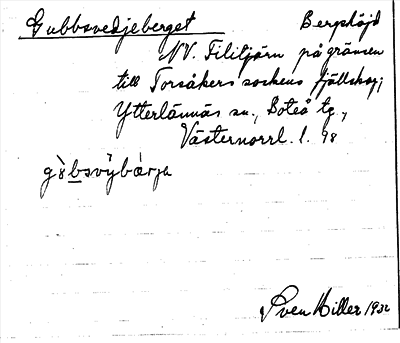 Gubbsvedjeberget Berghöjd
NV. Filitjärn på gränsen
till Torsåkers sockens fjällskog;
Ytterlännäs sn., Boteå tg,
Västernorrl. l. 98
Sven Hiller 1932